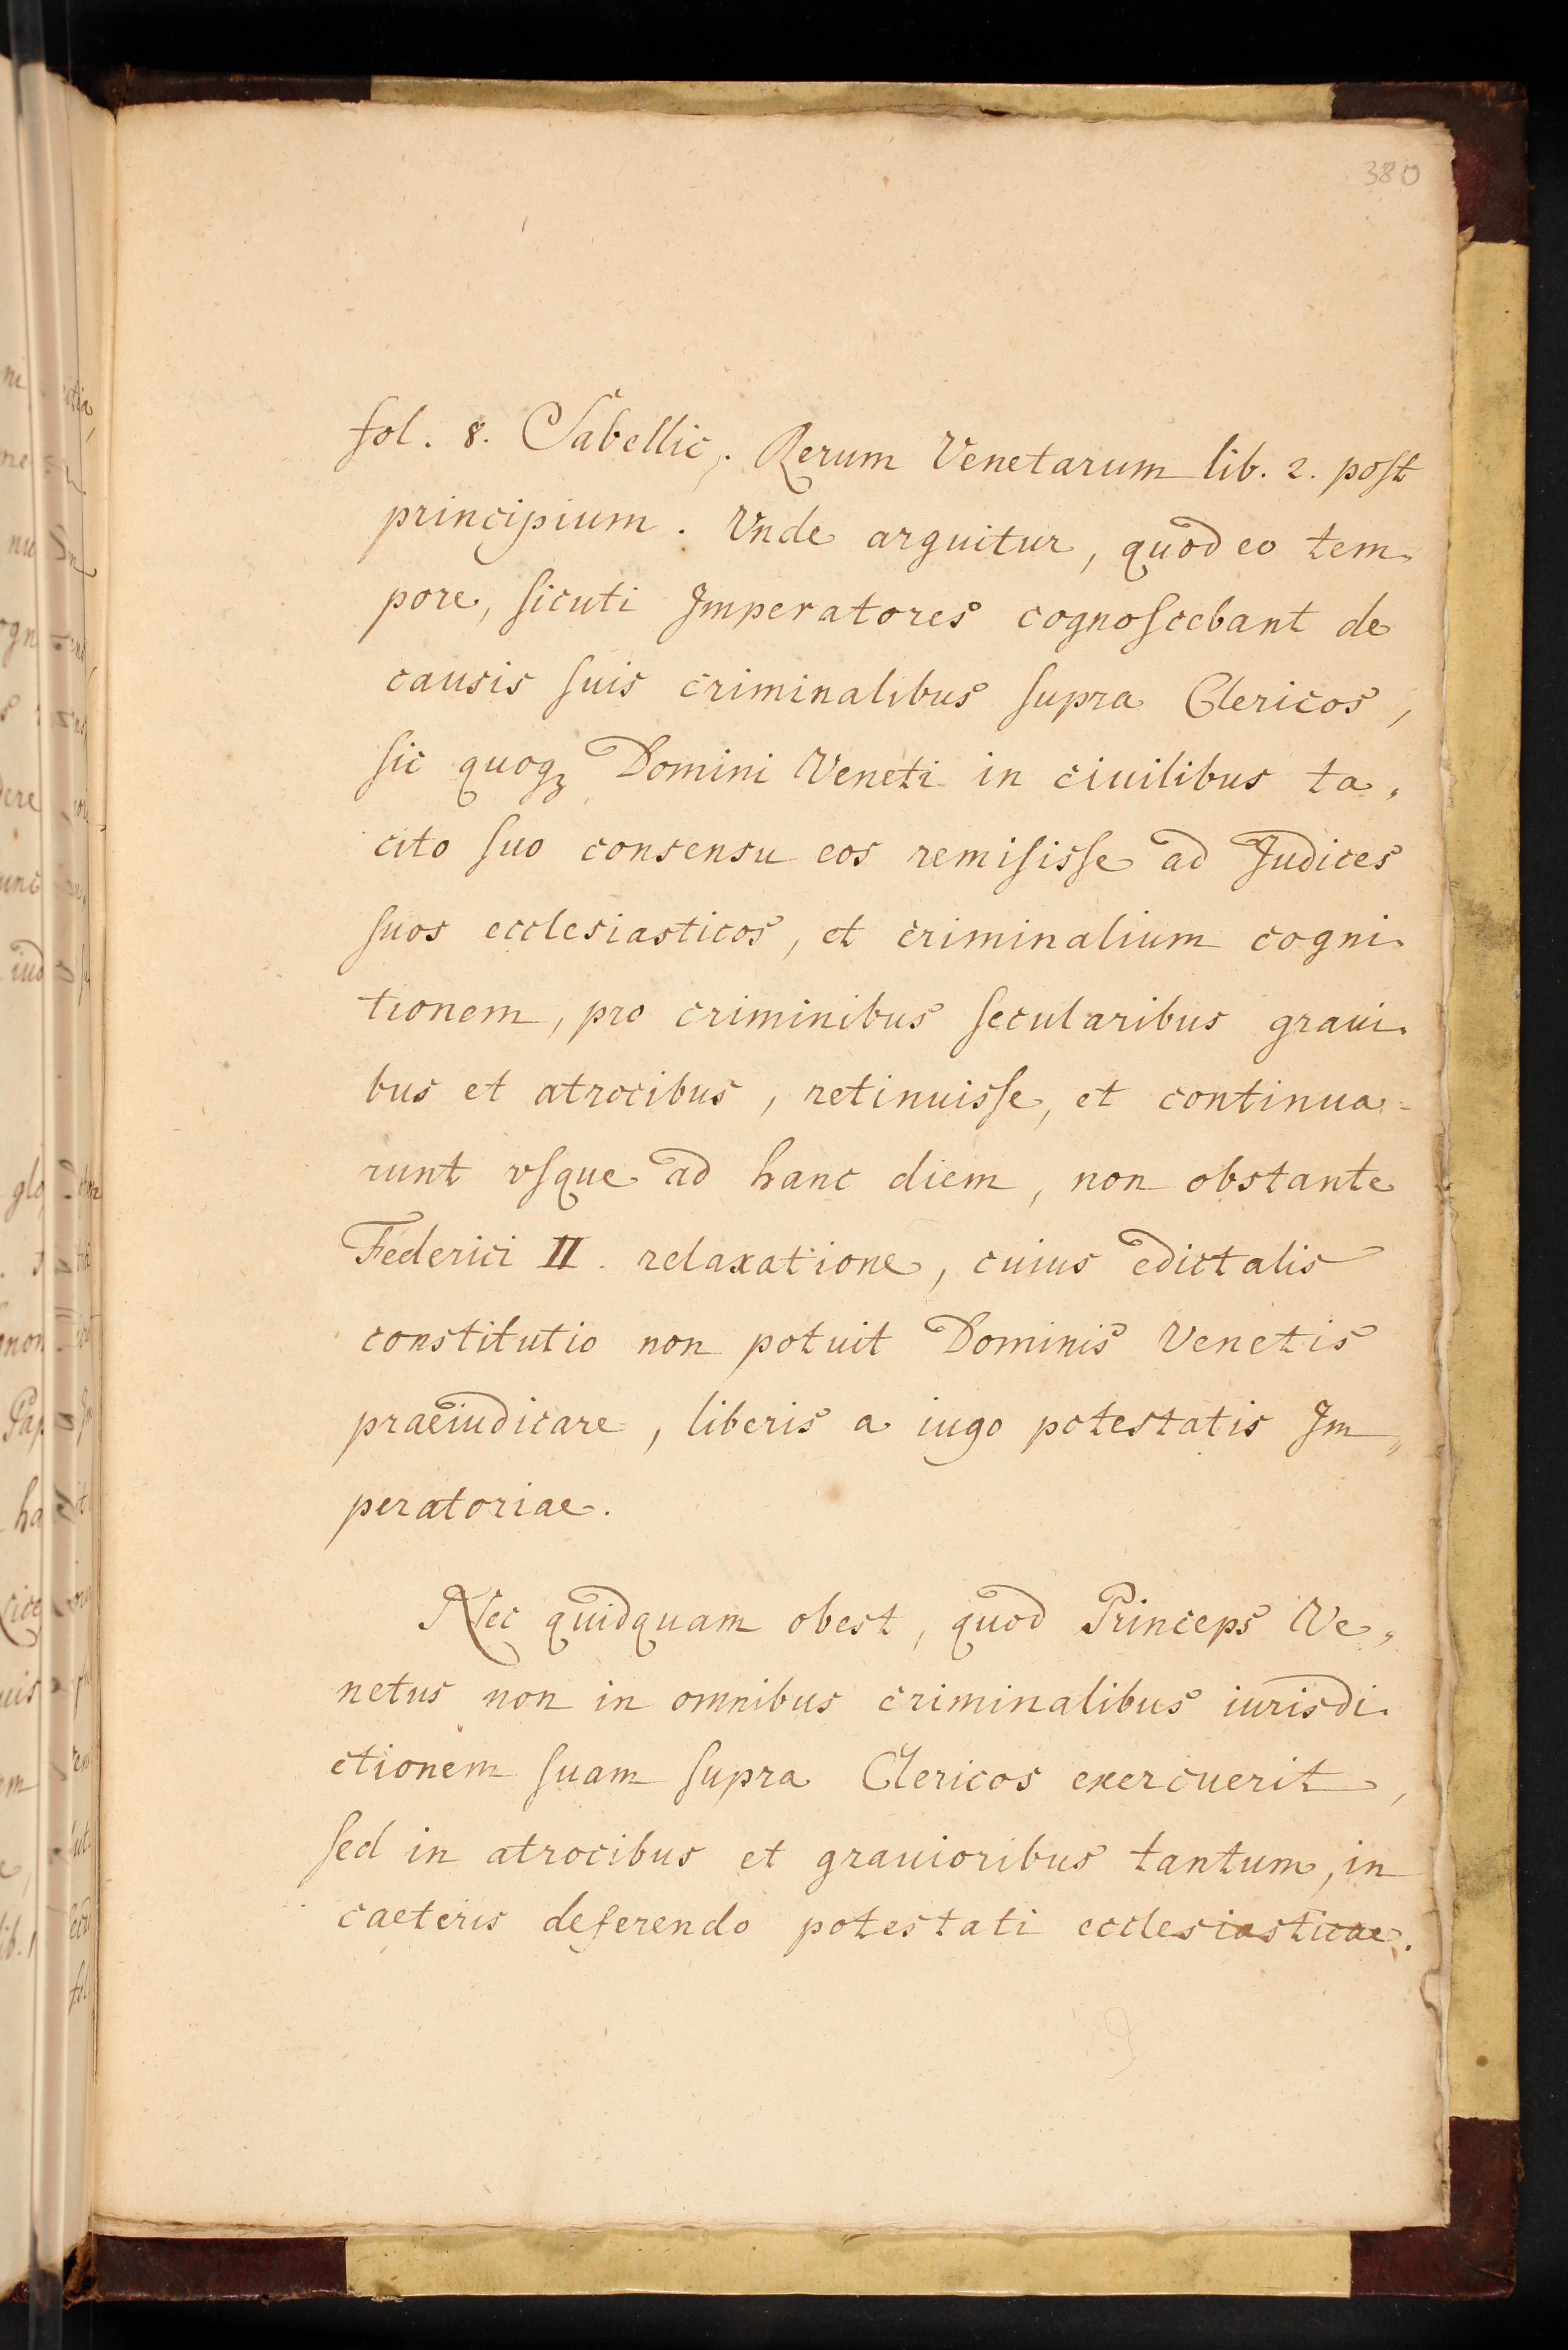 380
fol. 8. Sabellic, . Rerum Venetarum lib. 2. post
principium. Vnde arguitur, quod eo tem-
pore, sicuti Imperatores cognoscebant de
causis suis criminalibus supra Clericos,
sic quoqꝫ Domini Veneti in ciuilibus ta„
cito suo consensu eos remisisse ad Judices
suos ecclesiasticos, et criminalium cogni-
tionem, pro criminibus secularibus graui-
bus et atrocibus, retinuisse, et continua=
runt vsque ad hanc diem, non obstante
Federici II. relaxatione, cuius edictalis
constitutio non potuit Dominis Venetis
praeiudicare, liberis a iugo potestatis Im„
peratoriae.
Nec quidquam obest, quod Princeps Ve„
netus non in omnibus criminalibus iurisdi-
ctionem suam supra Clericos exercuerit,
sed in atrocibus et grauioribus tantum, in
caeteris deferendo potestati ecclesiasticae.